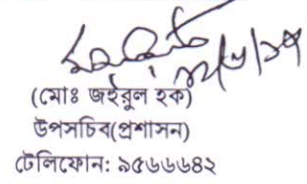 (মোঃ জহুরুল হক)
উপসচিব(প্রশাসন)
টেলিফোন: ৯৫৬৬৬৪২